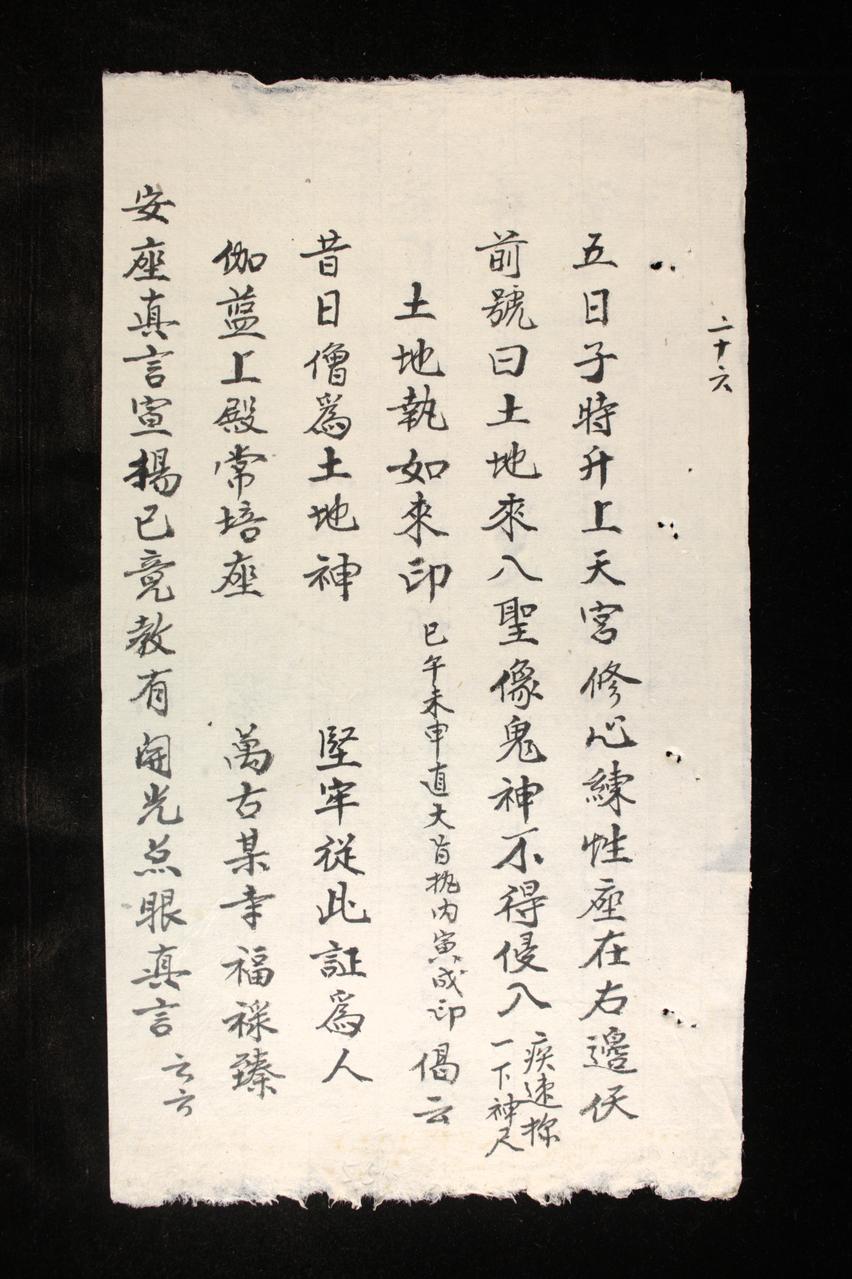 二十六
五日子時升上天宮修心練性座在右邊伏
前號曰土地來入聖像鬼神不得侵入疾速
一下神尺
土地執如來印巳午未申直大旨掐內寅成印偈云
昔日僧爲土地神 堅牢從此証爲人
伽蓝上殿常培座 萬古某幸福祿臻
安座真言宣揚已竟教有開光点眼真言云云